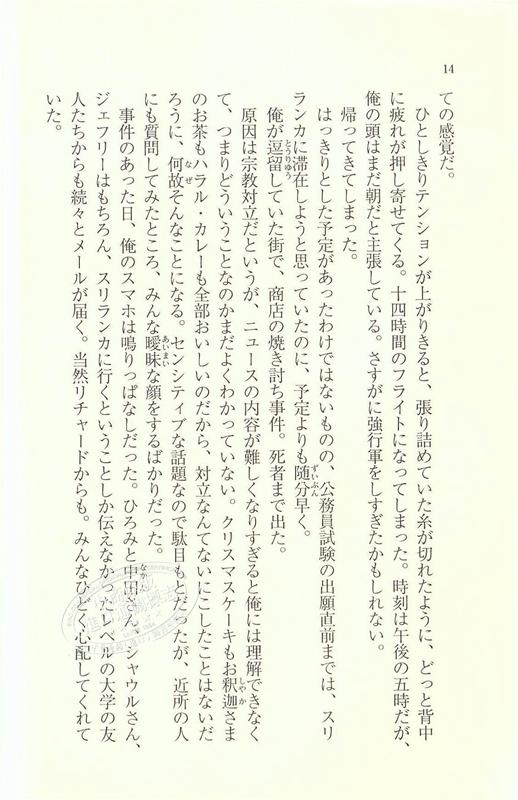 14
ての感覚だ。
ひとしきりテンションが上がりきると、張り詰めていた糸が切れたように、どっと背中
に疲れが押し寄せてくる。十四時間のフライトになってしまった。時刻は午後の五時だが、
俺の頭はまだ朝だと主張している。さすがに強行軍をしすぎたかもしれない。
帰ってきてしまった。
はっきりとした予定があったわけではないものの、公務員試験の出願直前までは、スリ
ランカに滞在しようと思っていたのに、予定よりも随分早く。
俺が逗留していた街で、商店の焼き討ち事件。死者まで出た。
原因は宗教対立だというが、ニュースの内容が難しくなりすぎると俺には理解できなく
て、つまりどういうことなのかまだよくわかっていない。クリスマスケーキもお釈迦さま
のお茶もハラル・カレーも全部おいしいのだから、対立なんてないにこしたことはないだ
ろうに、何故そんなことになる。センシティブな話題なので駄目もとだったが、近所の人
にも質問してみたところ、みんな曖昧な顔をするばかりだった。
事件のあった日、俺のスマホは鳴りっぱなしだった。ひろみと中田さん、シャウルさん、
ジェフリーはもちろん、スリランカに行くということしか伝えなかったレベルの大学の友
人たちからも続々とメールが届く。当然リチャードからも。みんなひどく心配してくれて
いた。